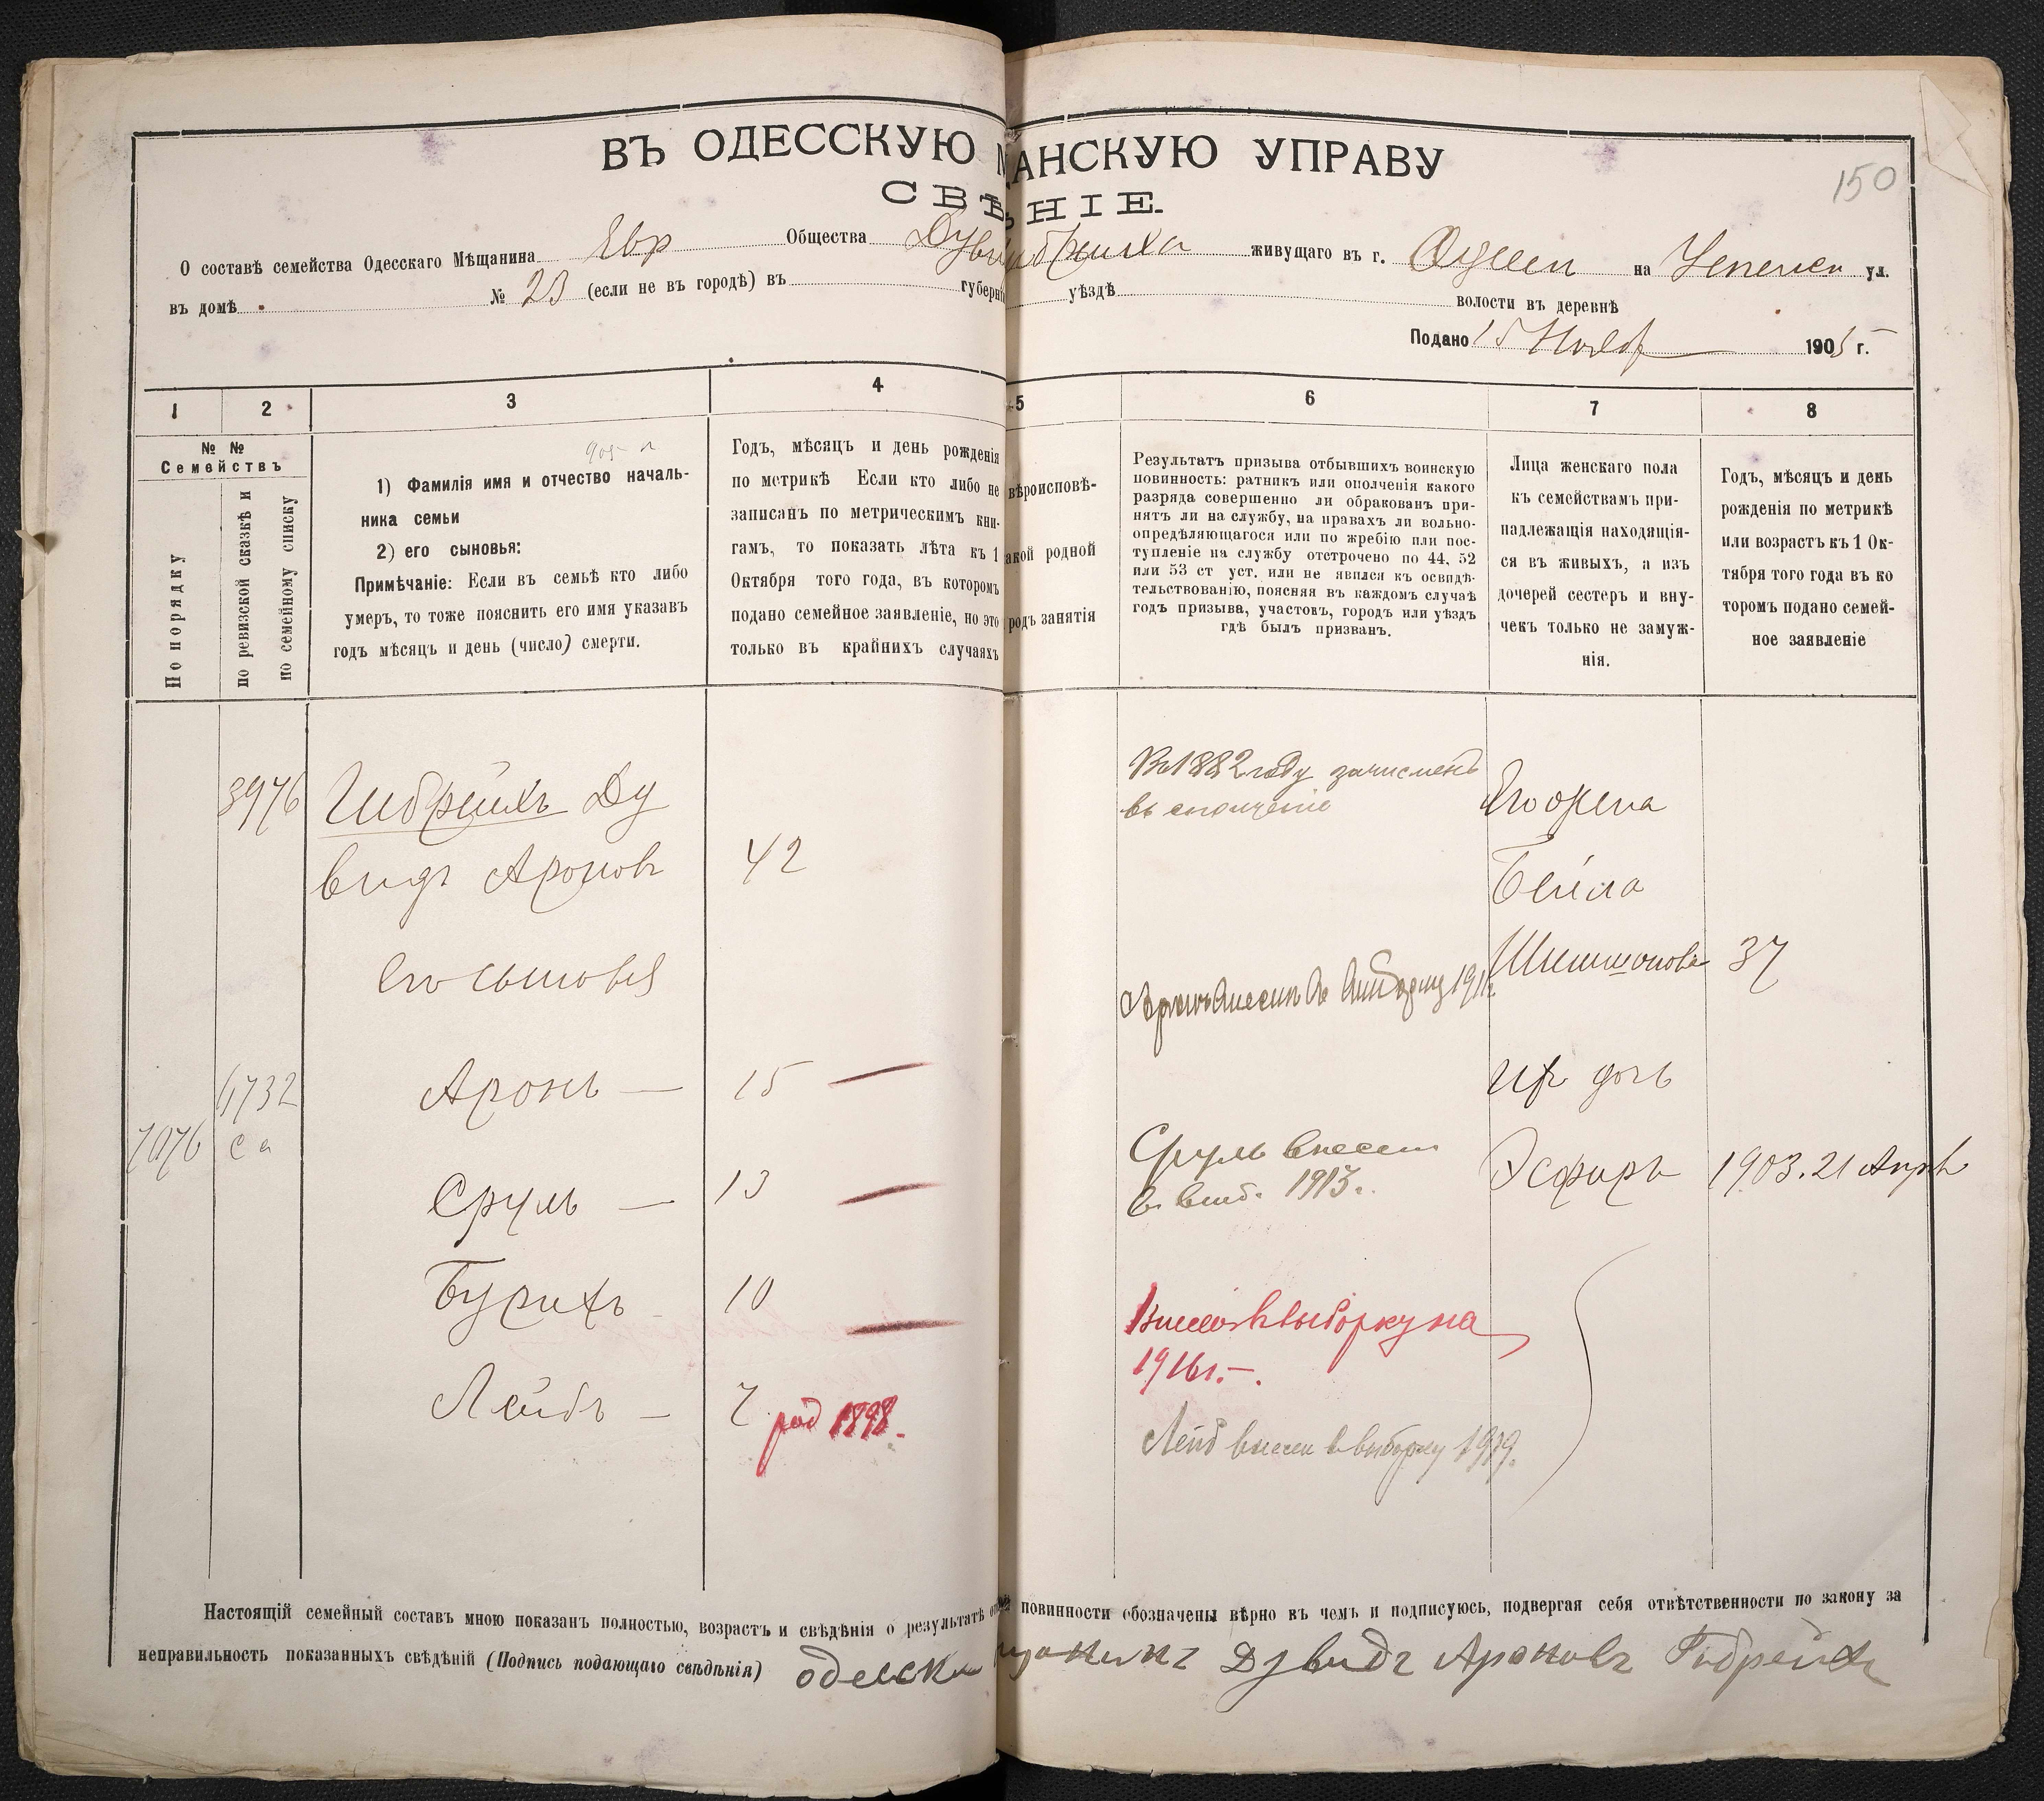 150
ВЪ ОДЕССКУЮ М АНСКУЮ УПРАВУ
СВѢ НІЕ.
О составѣ семейства Одесскаго Мѣщанина Евр Общества живущаго въ г. Одессѣ на Успенск ул.
въ домѣ № 23 (если не въ городѣ) въ губерні уѣздѣ волости въ деревнѣ
Подано 15 Нояб 1905 г.
1 2 3 4 5 6 7 8
№ №
Семействъ
По порядку
по ревизской сказкѣ и
по семейному списку
1) Фамилія имя и отчество началь-
ника семьи
2) его сыновья:
Примѣчаніе: Если въ семьѣ кто либо
умеръ, то тоже пояснить его имя указавъ
годъ мѣсяцъ и день (число) смерти.
Годъ, мѣсяцъ и день рожденія
по метрикѣ Если кто либо не
записанъ по метрическимъ кни-
гамъ, то показать лѣта къ 1
Октября того года, въ которомъ
подано семейное заявленіе, но это
только въ крайнихъ случаяхъ
вѣроисповѣ-
акой родной
родъ занятія
Результатъ призыва отбывшихъ воинскую
повинность: ратникъ или ополченія какого
разряда совершенно ли обракованъ при-
нятъ ли на службу, на правахъ ли вольно-
опредѣляющагося или по жребію или пос-
тупленіе на службу отстрочено по 44, 52
или 53 ст уст. или не явился къ освидѣ-
тельствованію, поясняя въ каждомъ случаѣ
годъ призыва, участокъ, городъ или уѣздъ
гдѣ былъ призванъ.
Лица женскаго пола
къ семействамъ при-
надлежащія находящія-
ся въ живыхъ, а изъ
дочерей сестеръ и вну-
чекъ только не замуж-
нія.
Годъ, мѣсяцъ и день
рожденія по метрикѣ
или возрастъ къ 1 Ок-
тября того года въ ко
торомъ подано семей-
ное заявленіе
3976 Гибрейхъ Ду
видъ Ароновъ 42
Въ 1882 году зачисленъ
въ ополченіе
Его жена
Бейла
Шимшонова 37
его сыновья
Аронъ внесенъ въ выборку 1911г.
Аронъ — 15
их дочь
4732
са
7076
Сруль — 13
Сруль внесен
в выб. 1913г.
Эсфирь 1903. 21 Апрѣ
Бурихъ 10
Внесенъ въ выборку на
1916г. —.
Лейбъ — 7 род 1898.
Лейб внесен в выборку 1919.
Настоящій семейный составъ мною показанъ полностью, возрастъ и свѣдѣнія о результатѣ повинности обозначены вѣрно въ чемъ и подписуюсь, подвергая себя отвѣтственности по закону за
неправильность показанныхъ свѣдѣній (Подпись подающаго свѣдѣнія) одесски щанинъ Дувидъ Ароновъ Гибрейхъ